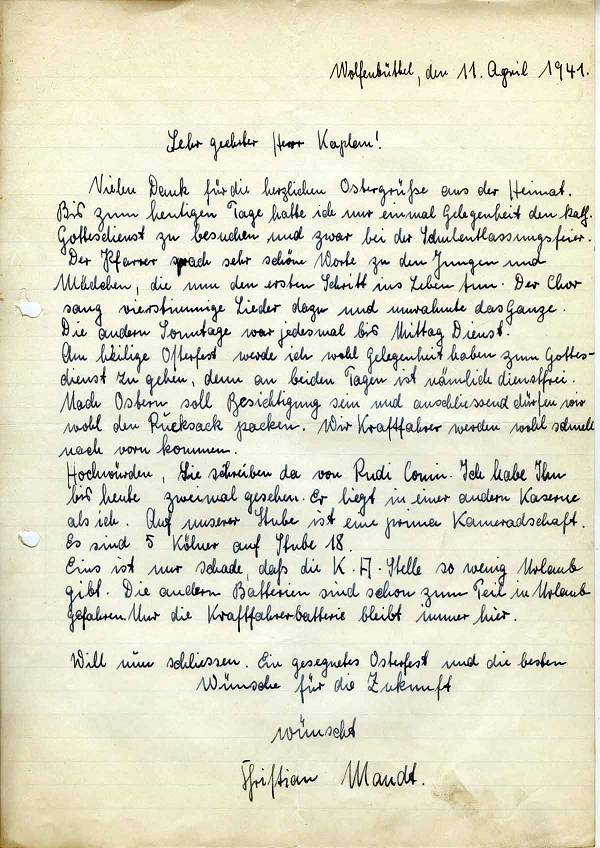 Wolfenbüttel, den 11. April 1941.
Sehr geehrter Herr Kaplan!
Vielen Dank für die herzlichen Ostergrüße aus der Heimat.
Bis zum heutigen Tage hatte ich nur einmal Gelegenheit den kath.
Gottesdienst zu besuchen und zwar bei der Schulentlassungsfeier.
Der Pfarrer sprach sehr schöne Worte zu den Jungen und
Mädchen, die nun den ersten Schritt ins Leben tun. Der Chor
sang vierstimmige Lieder dazu und umrahmte das Ganze.
Die andern Sonntage war jedesmal bis Mittag Dienst.
Am heilige Osterfest werde ich wohl Gelegenheit haben zum Gottes-
dienst zu gehen, denn an beiden Tagen ist nämlich dienstfrei.
Nach Ostern soll Besichtigung sein und anschliessend dürfen wir
wohl den Rucksack packen. Wir Kraftfahrer werden wohl schnell
nach vorn kommen.
Hochwürden, Sie schreiben da von Rudi Comin. Ich habe Ihn
bis heute zweimal gesehen. Er liegt in einer andern Kaserne
als ich. Auf unserer Stube ist eine prima Kameradschaft.
Es sind 5 Kölner auf Stube 18.
Eins ist nur schade, daß die K. A. Stelle so wenig Urlaub
gibt. Die andern Batterien sind schon zum Teil in Urlaub
gefahren. Nur die Kraftfahrerbatterie bleibt immer hier.
Will nun schliessen. Ein gesegnetes Osterfest und die besten
Wünsche für die Zukunft
wünscht
Christian Mandt.